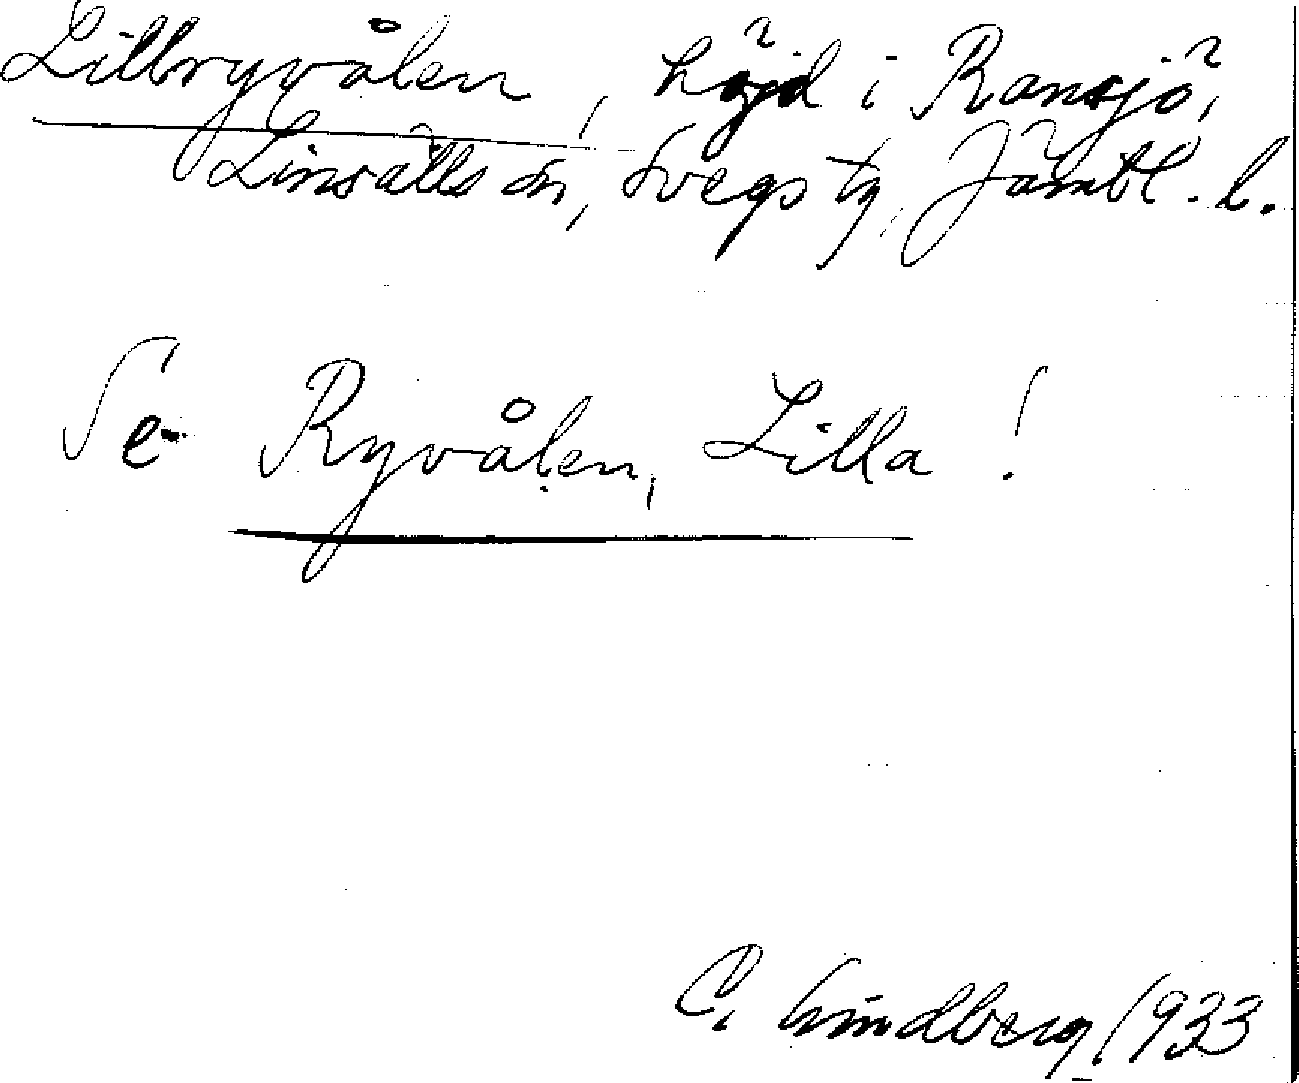 Lillryvålen, höjd i Ransjö,
Linsälls sn, Svegs tg, Jämtl. l.
Se Ryvålen, Lilla!
C. Lindberg 1933